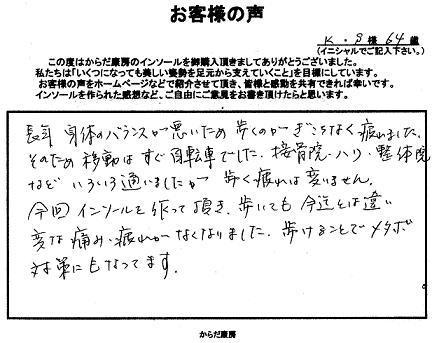 お客様の声
K・S 様 64 歳
(イニシャルでご記入下さい。)
この度はからだ康房のインソールを御購入頂きましてありがとうございました。
私たちは「いくつになっても美しい姿勢を足元から支えていくこと」を目標にしています。
お客様の声をホームページなどで紹介させて頂き、皆様と感動を共有できれば幸いです。
インソールを作られた感想など、ご自由にご意見をお書き頂けたらと思います。
長年 身体のバランスが悪いため 歩くのがぎこちなく疲れました。
そのため 移動はすぐ自転車でした。接骨院・ハリ・整体院
など いろいろ通いましたが 歩く疲れは変いません。
今回 インソールを 作って頂き、歩いても 今迄とは違い
変な痛み・疲れがなくなりました。歩けることでメタボ
対策にもなってます。
からだ康房